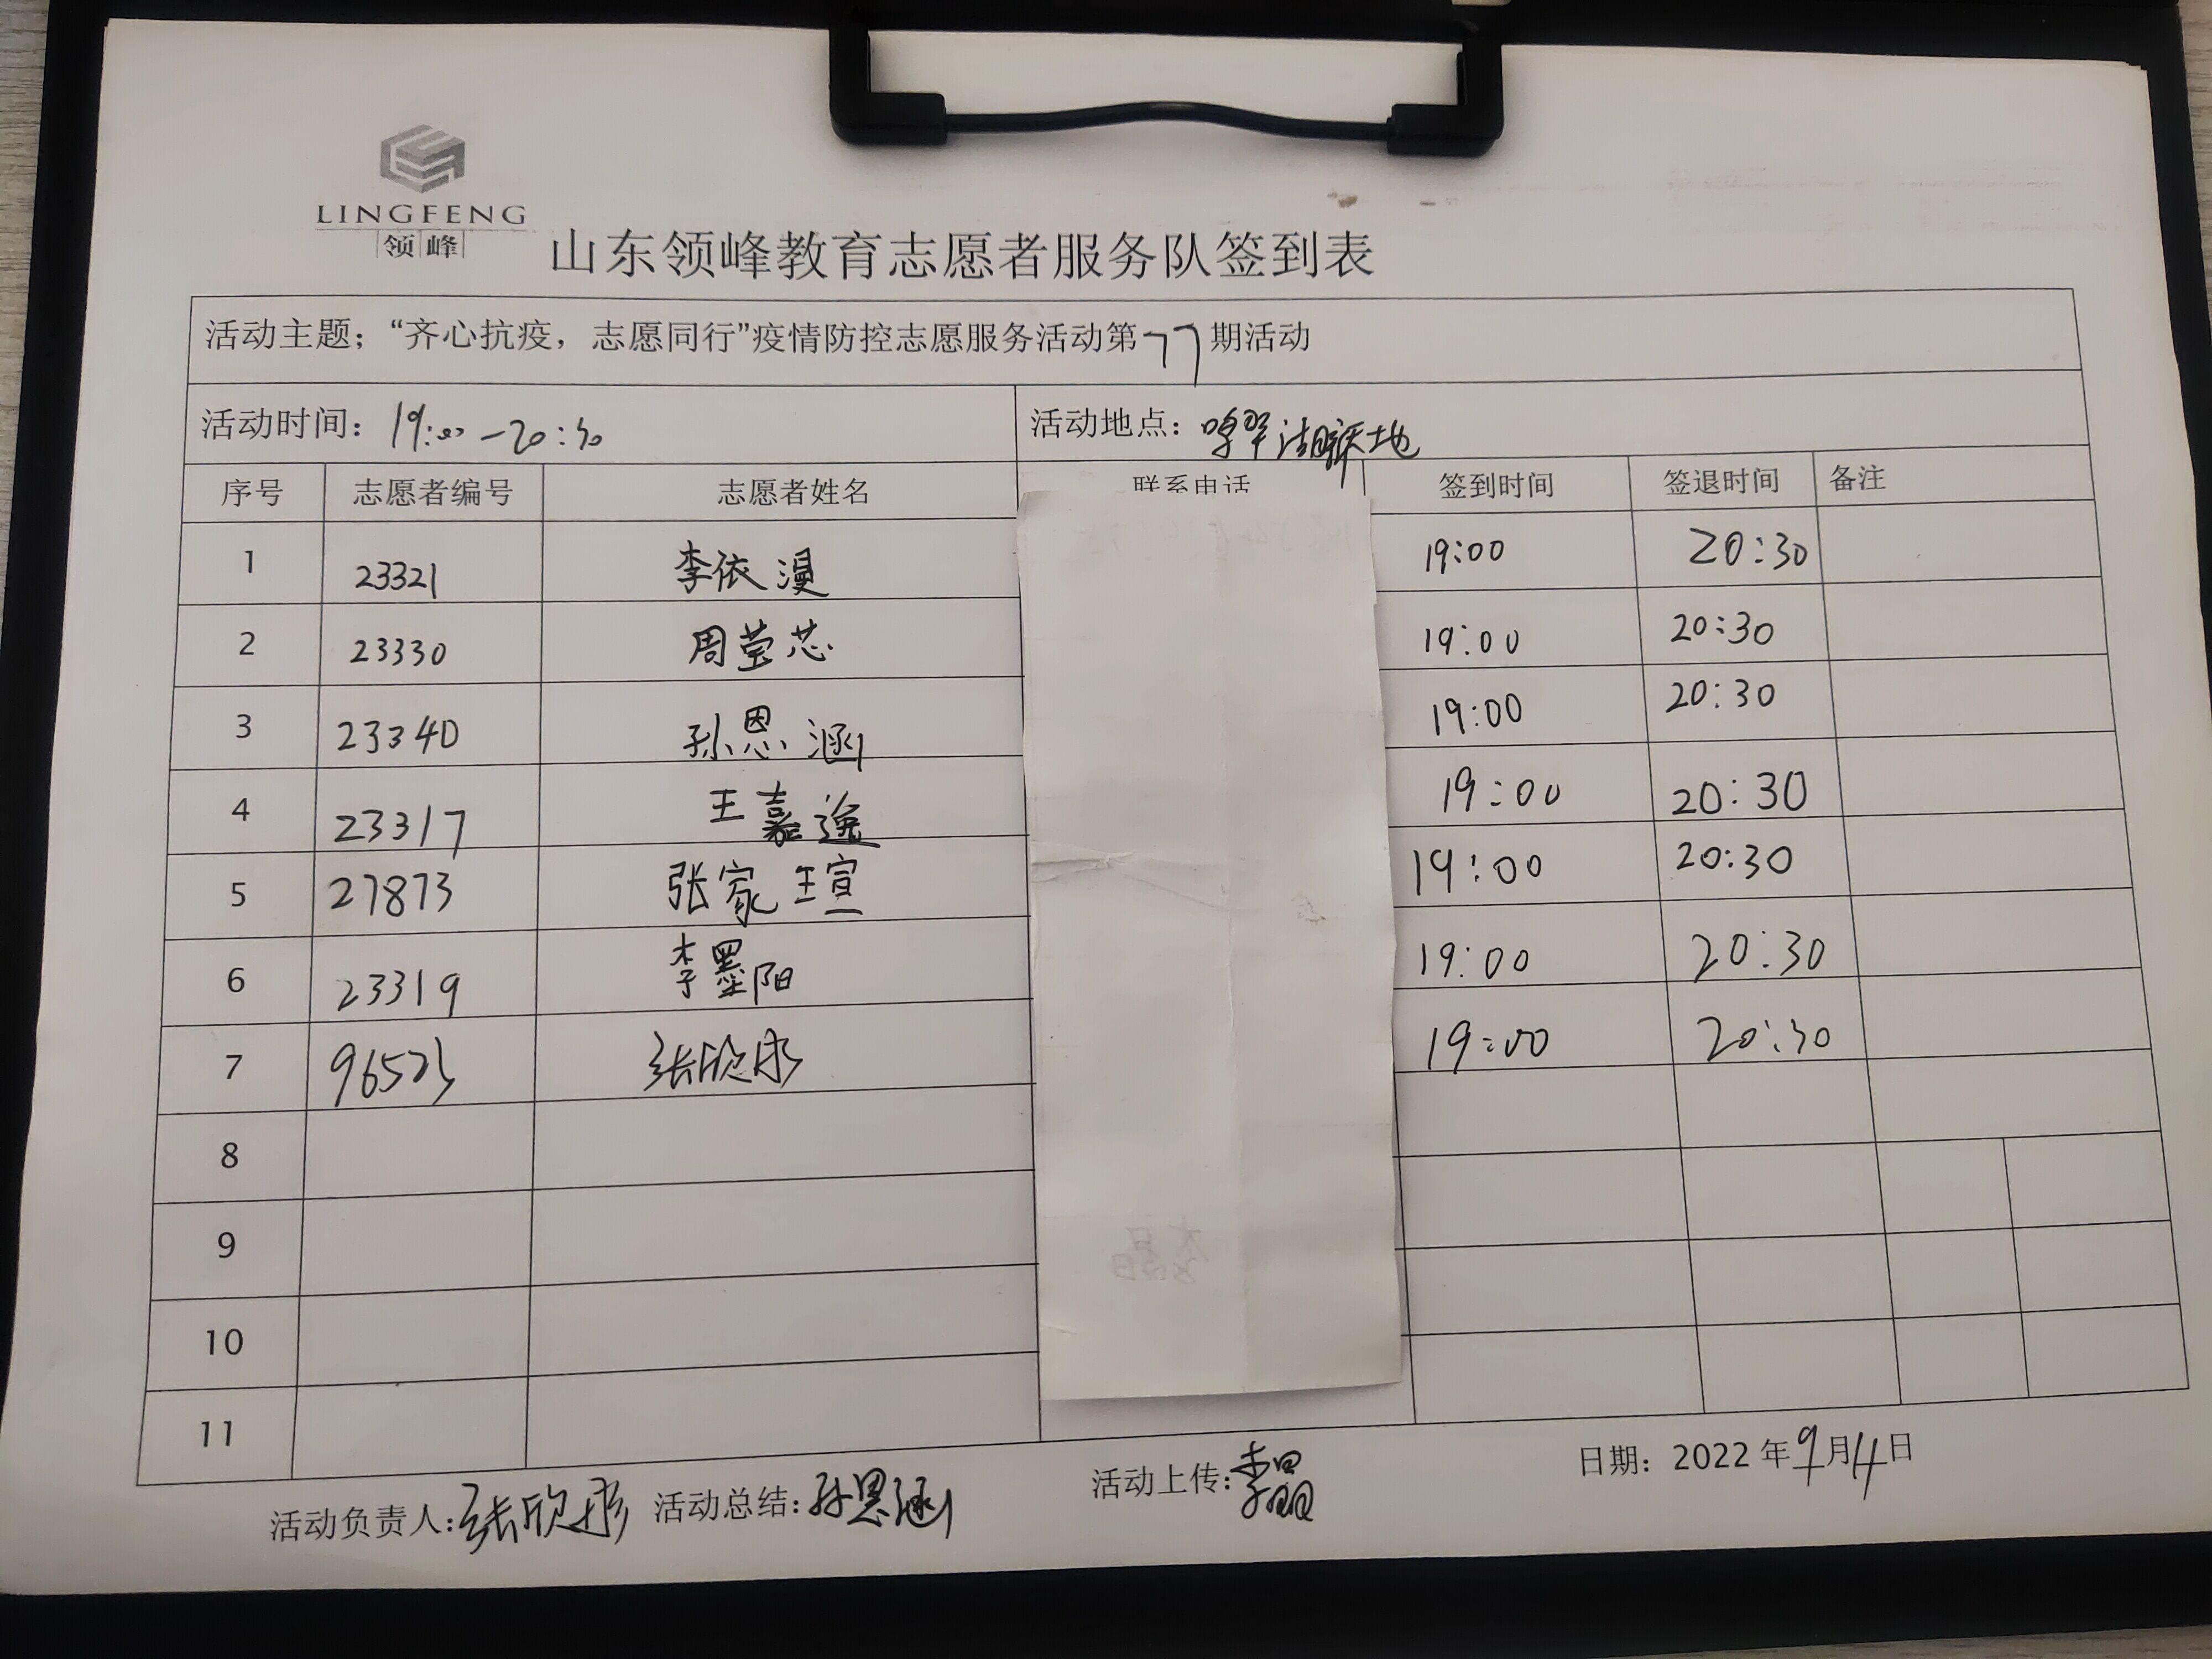 LINGFENG
领峰
山东领峰教育志愿者服务队签到表
活动主题；“齐心抗疫，志愿同行”疫情防控志愿服务活动第77期活动
活动时间：19:00-20:30 活动地点：
序号 志愿者编号 志愿者姓名 联系电话 签到时间 签退时间 备注
1 23321 李依漫 19:00 20:30
2 23330 周莹芯 19:00 20:30
3 23340 孙恩涵 19:00 20:30
4 23317 王嘉逸 19:00 20:30
5 27873 张家瑄 19:00 20:30
6 23319 李墨阳 19:00 20:30
7 96523 张欣彤 19:00 20:30
8
9
10
11
活动负责人：张欣彤 活动总结：孙恩涵 活动上传：李晶 日期：2022年9月4日